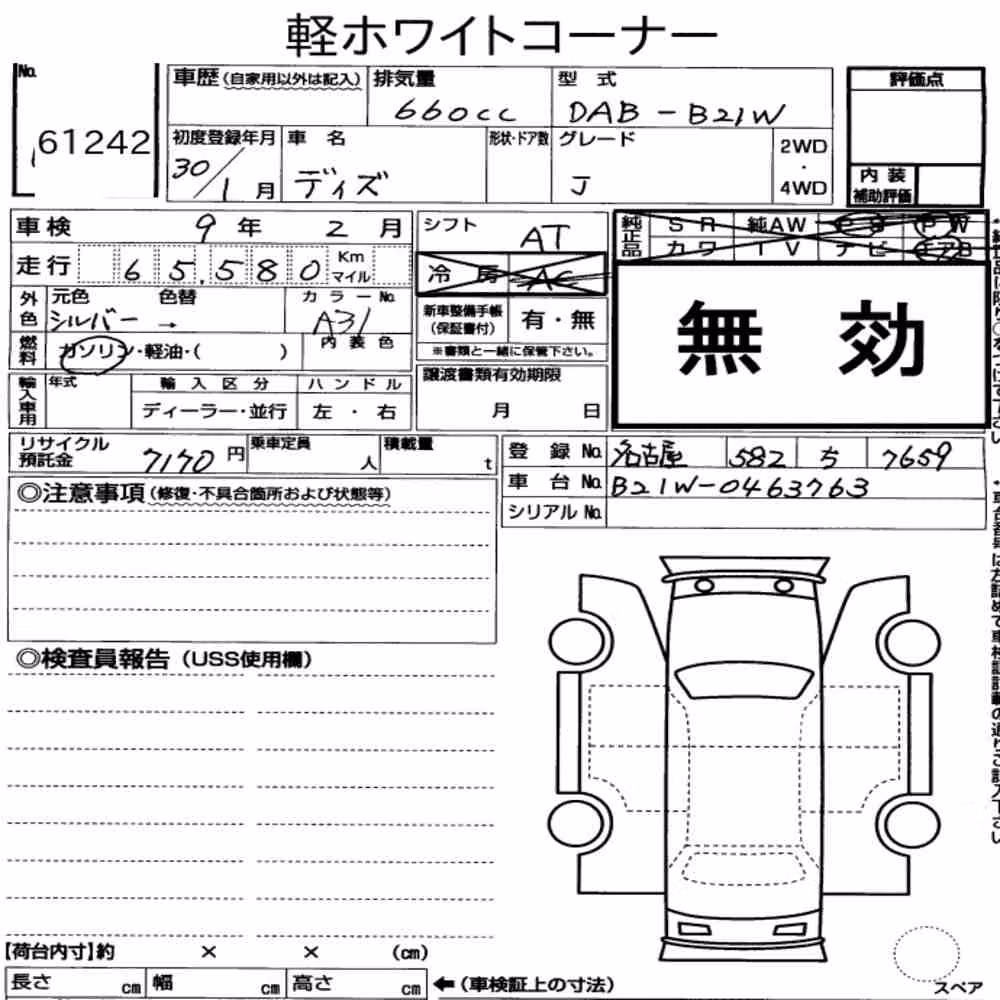 軽ホワイトコーナー
No. 61242
車歴(自家用以外は記入)
排気量 660cc
型式 DAB-B21W
評価点
初度登録年月 30/1月
車名 ディズ
形状・ドア数
グレード J
2WD・4WD
内装補助評価
車検 9年 2月
シフト AT
純正品 SR 純AW PS PW
カワ TV ナビ エアB
走行 65,580 Km マイル
冷房 AC
外色 元色 シルバー → 色替
カラーNo. A31
新車整備手帳(保証書付) 有・無
※書類と一緒に保管下さい。
無効
燃料 ガソリン・軽油・( )
内装色
輸入車用 年式 輸入区分 ハンドル
ディーラー・並行 左・右
譲渡書類有効期限
月 日
リサイクル預託金 7170円
乗車定員 人
積載量 t
登録No. 名古屋 582 ち 7659
車台No. B21W-0463763
シリアルNo.
◎注意事項(修復・不具合箇所および状態等)
◎検査員報告(USS使用欄)
【荷台内寸】約 × × (cm)
長さ cm 幅 cm 高さ cm ←(車検証上の寸法)
スペア